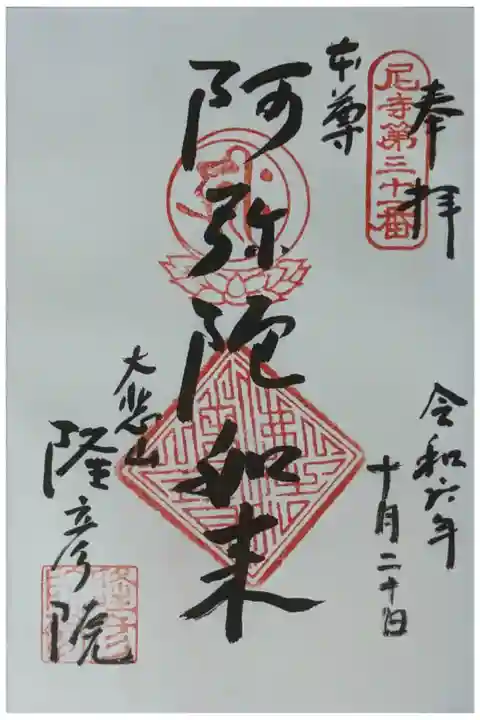 奉拝
尼寺第三十一番
本尊
阿弥陀如来
令和六年
十月二十日
大悲山
隆彦院